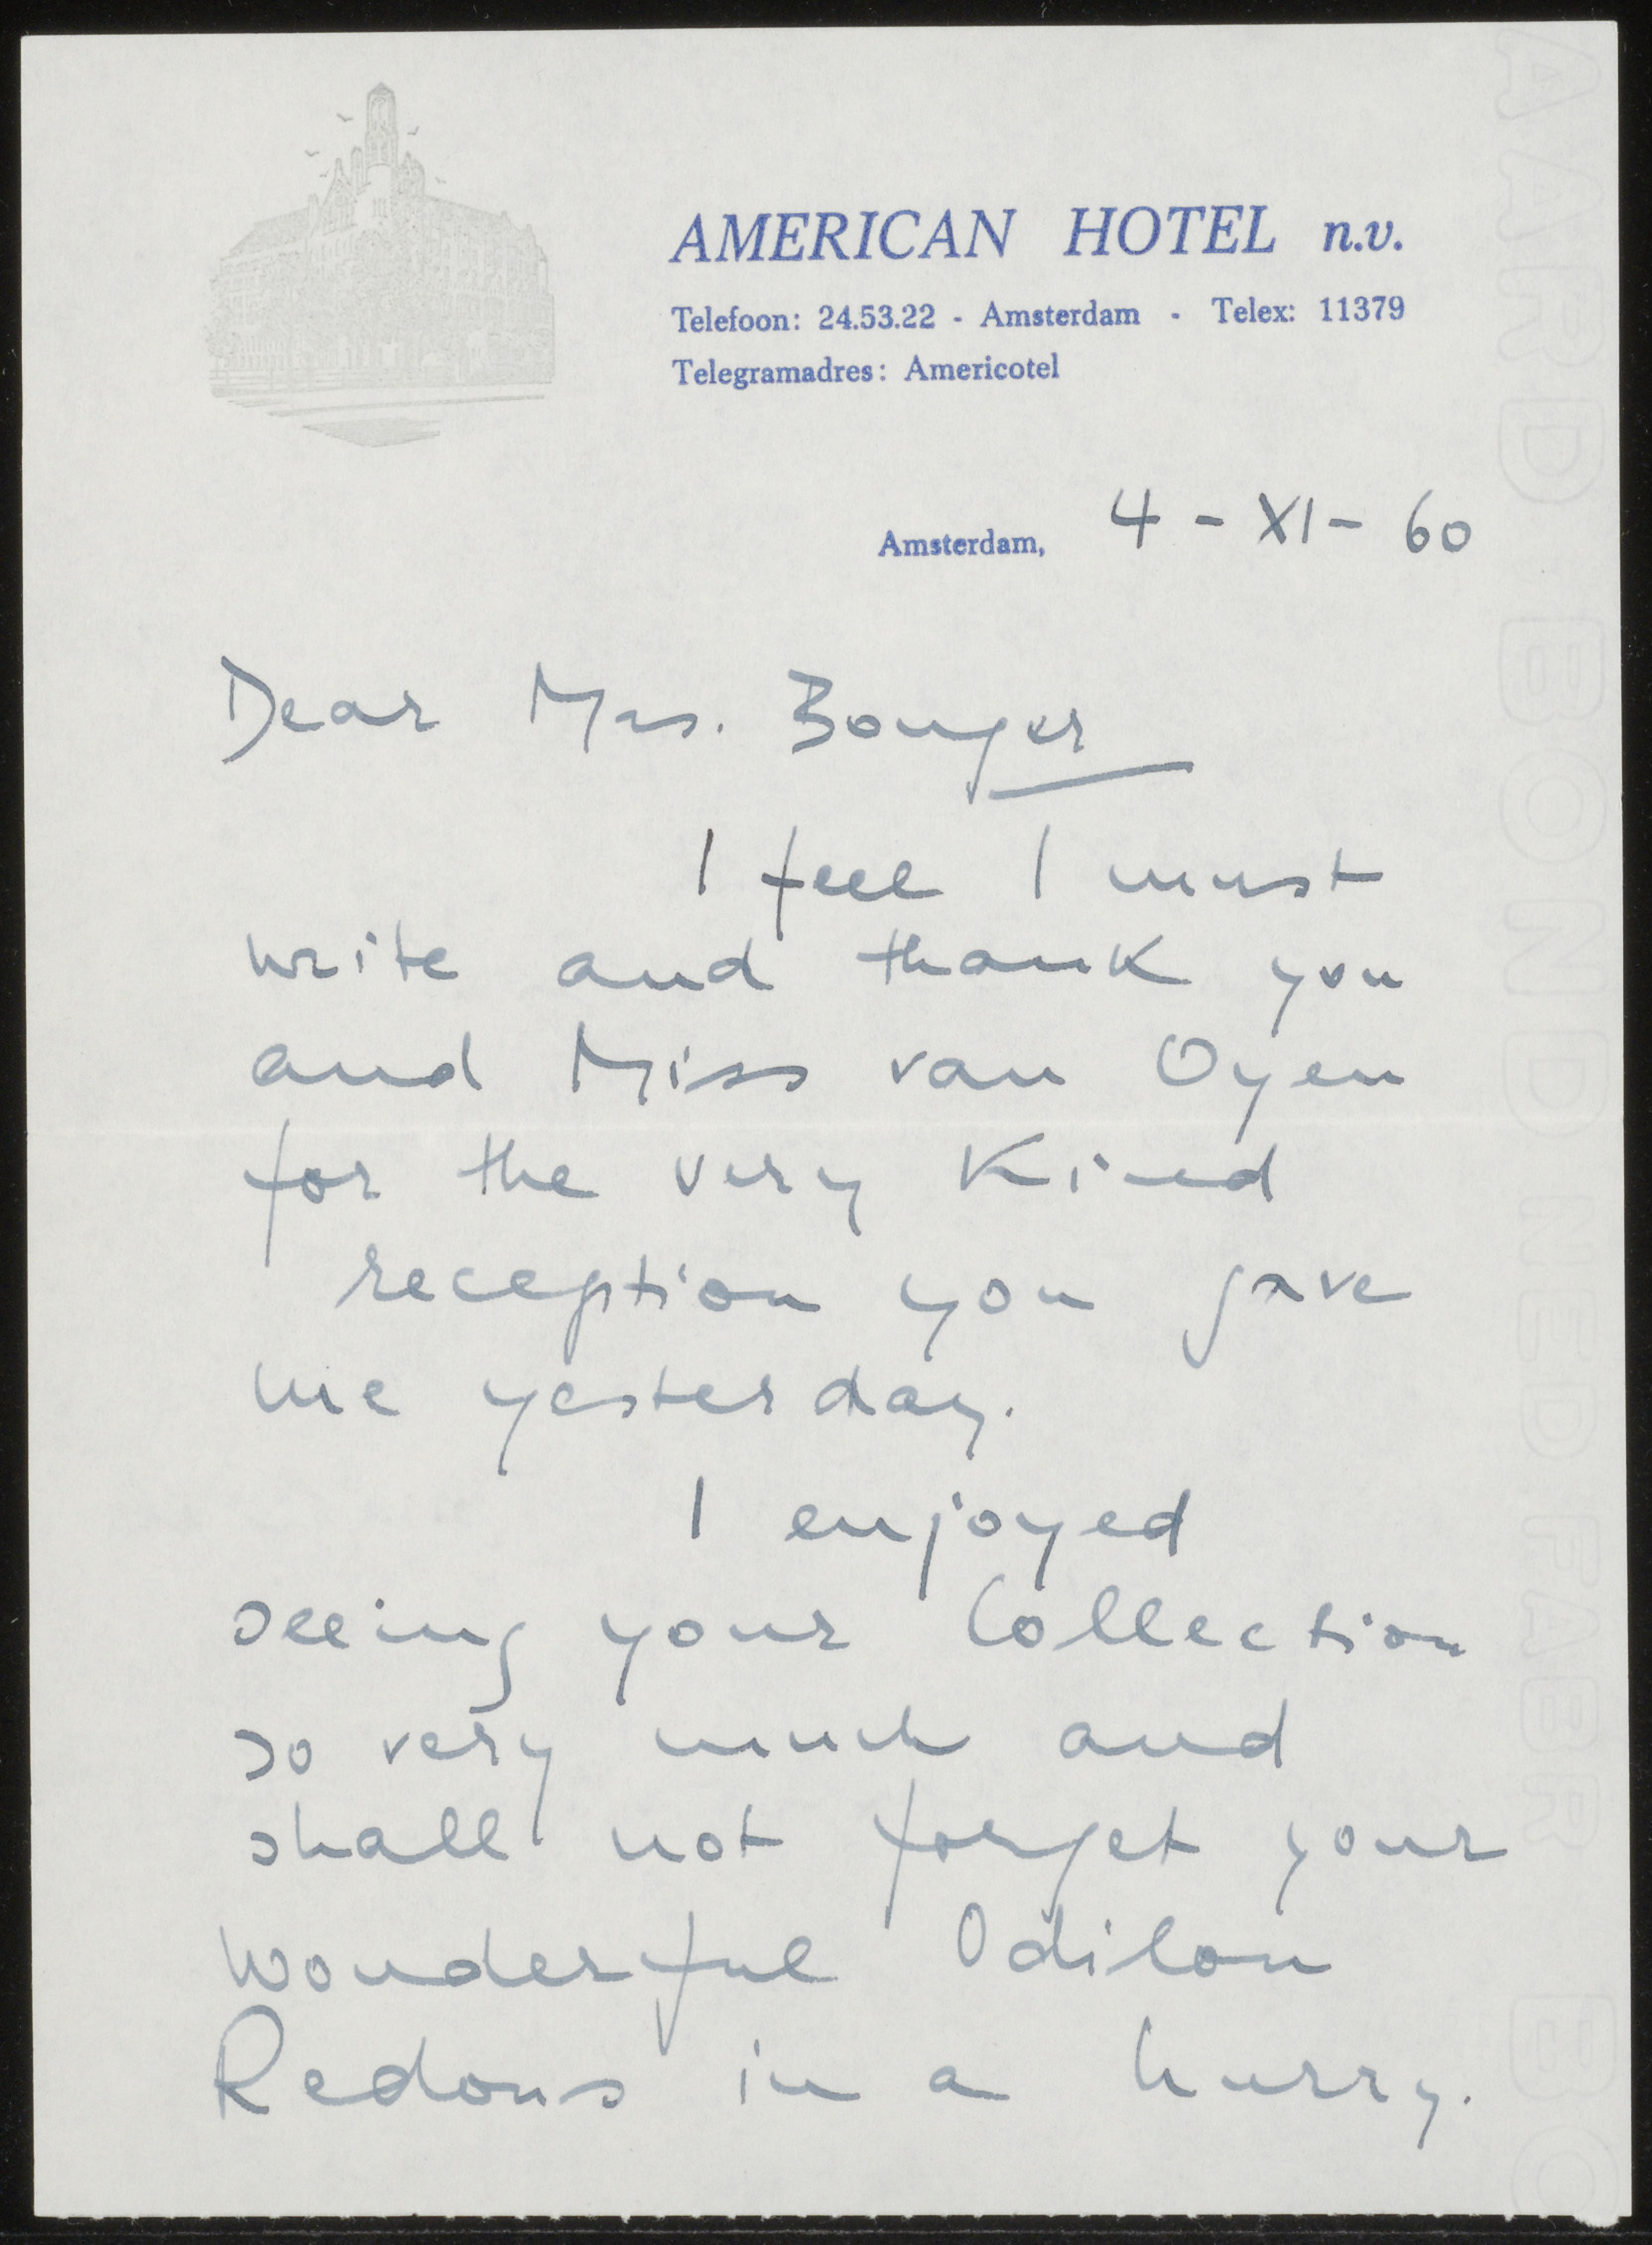 AMERICAN HOTEL n.v.
Telefoon: 24.53.22 - Amsterdam - Telex: 11379
Telegramadres: Americotel
Amsterdam, 4 - XI - 60
Dear Mrs. Bonger
I feel I must
write and thank you
and Miss van Oyen
for the very Kind
reception you gave
me yesterday.
I enjoyed
seeing your Collection
so very much and
shall not forget your
wonderful Odilon
Redons in a hurry.